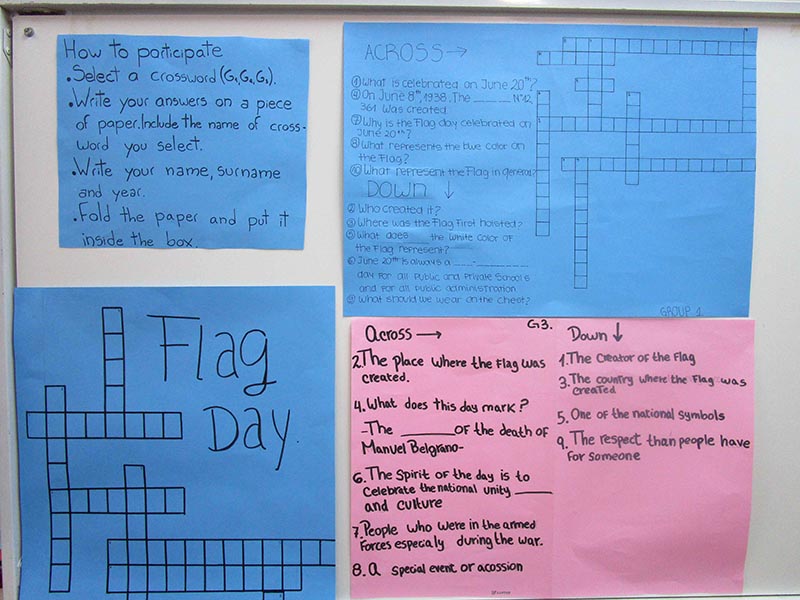 How to participate
• Select a crossword (G1, G2, G3).
• Write your answers on a piece
of paper. Include the name of cross-
word you select.
• Write your name, surname
and year.
• Fold the paper and put it
inside the box.
ACROSS →
① What is celebrated on June 20th?
④ On June 8th, 1938. The _ _ _ _ N° 12,
361 was created
⑦ Why is the Flag day celebrated on
June 20th?
⑧ What represents the blue color on
the Flag?
⑩ What represent the Flag in general?
DOWN ↓
② Who created it?
③ Where was the Flag First hoisted?
⑤ What does ___ the white color of
the Flag represent?
⑥ June 20th is always a ___-___
day for all Public and Private Schools
and for all public administration
⑨ What should we wear on the chest?
GROUP 1
Flag
Day.
Across → G3.
2. The place where the Flag was
created.
4. What does this day mark?
-The ______ of the death of
Manuel Belgrano-
6. The spirit of the day is to
celebrate the national unity ____
and culture
7. People who were in the armed
Forces especialy during the war.
8. A special event or acossion
Down ↓
1. The creator of the Flag
3. The country where the Flag was
created
5. One of the national symbols
9. The respect than people have
For someone